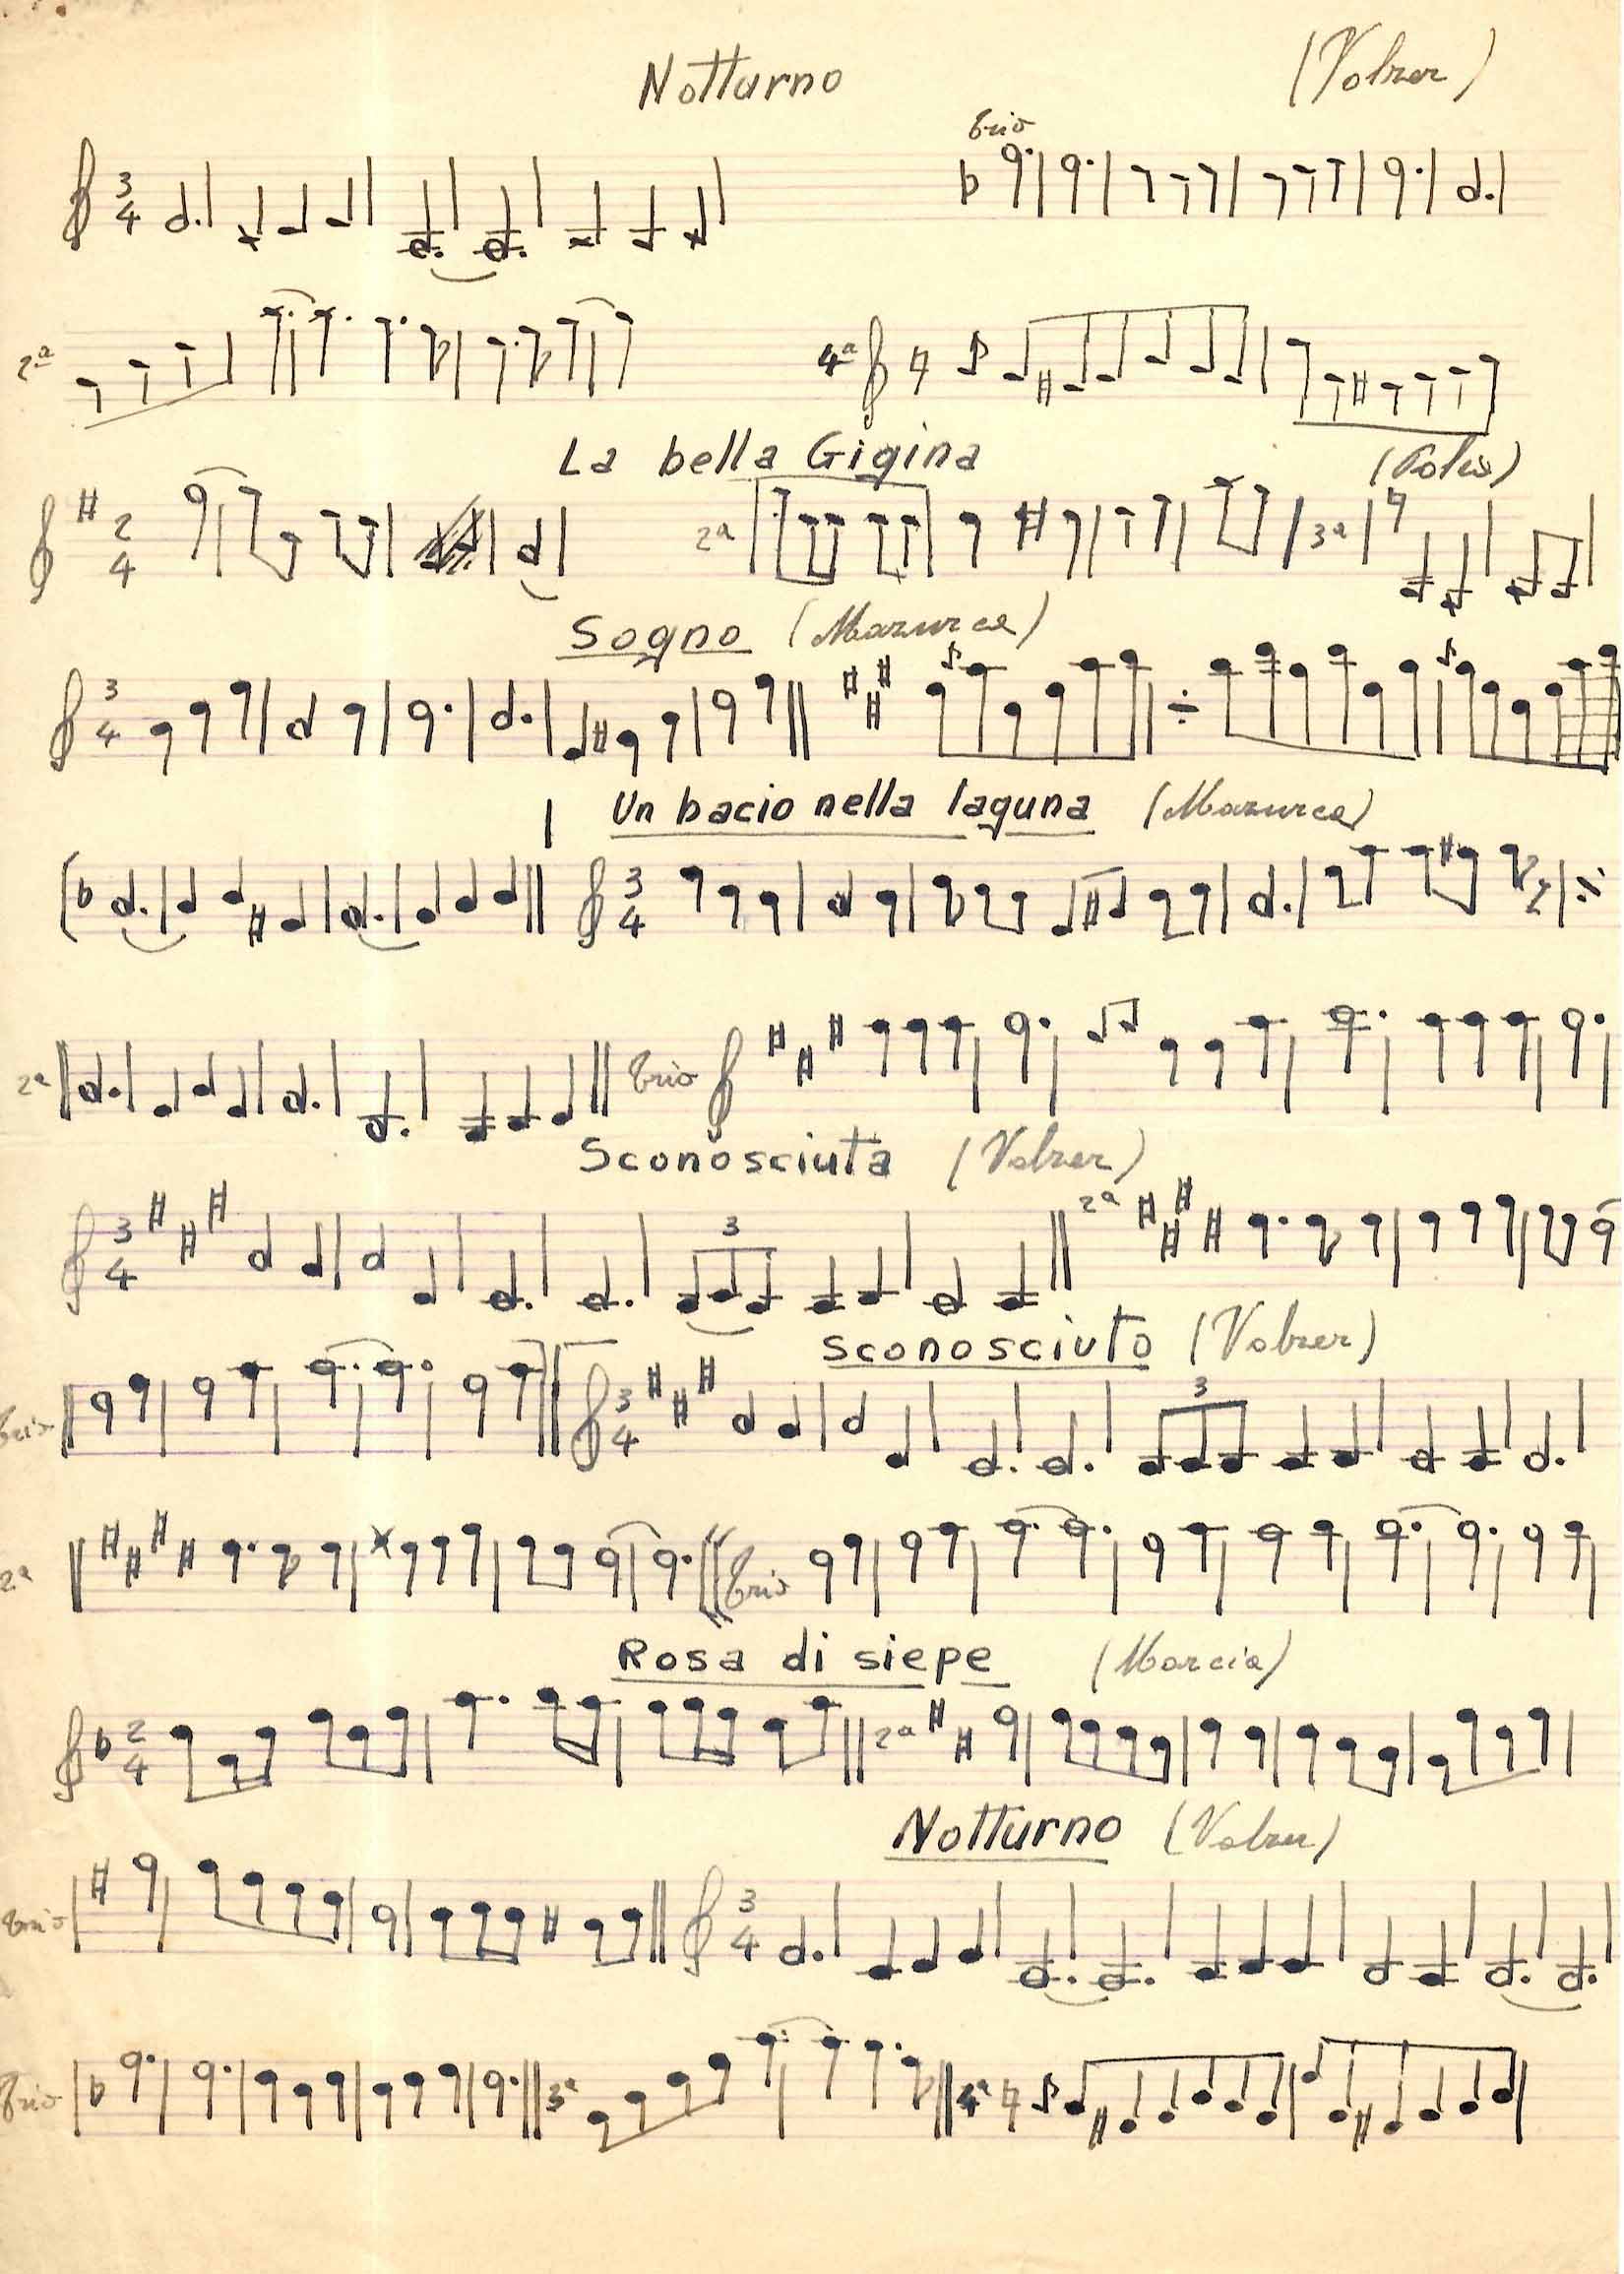 Notturno (Valzer)
3 4 trio
2ª 4ª
La bella Gigina (Polca)
2 4 2ª 3ª
Sogno (Mazurca)
3 4
Un bacio nella laguna (Mazurca)
3 4
2ª trio
Sconosciuta (Valzer)
3 4 3 2ª
Sconosciuto (Valzer)
trio 3 4 3
2ª trio
Rosa di siepe (Marcia)
2 4 2ª
Notturno (Valzer)
trio 3 4
trio 3ª 4ª